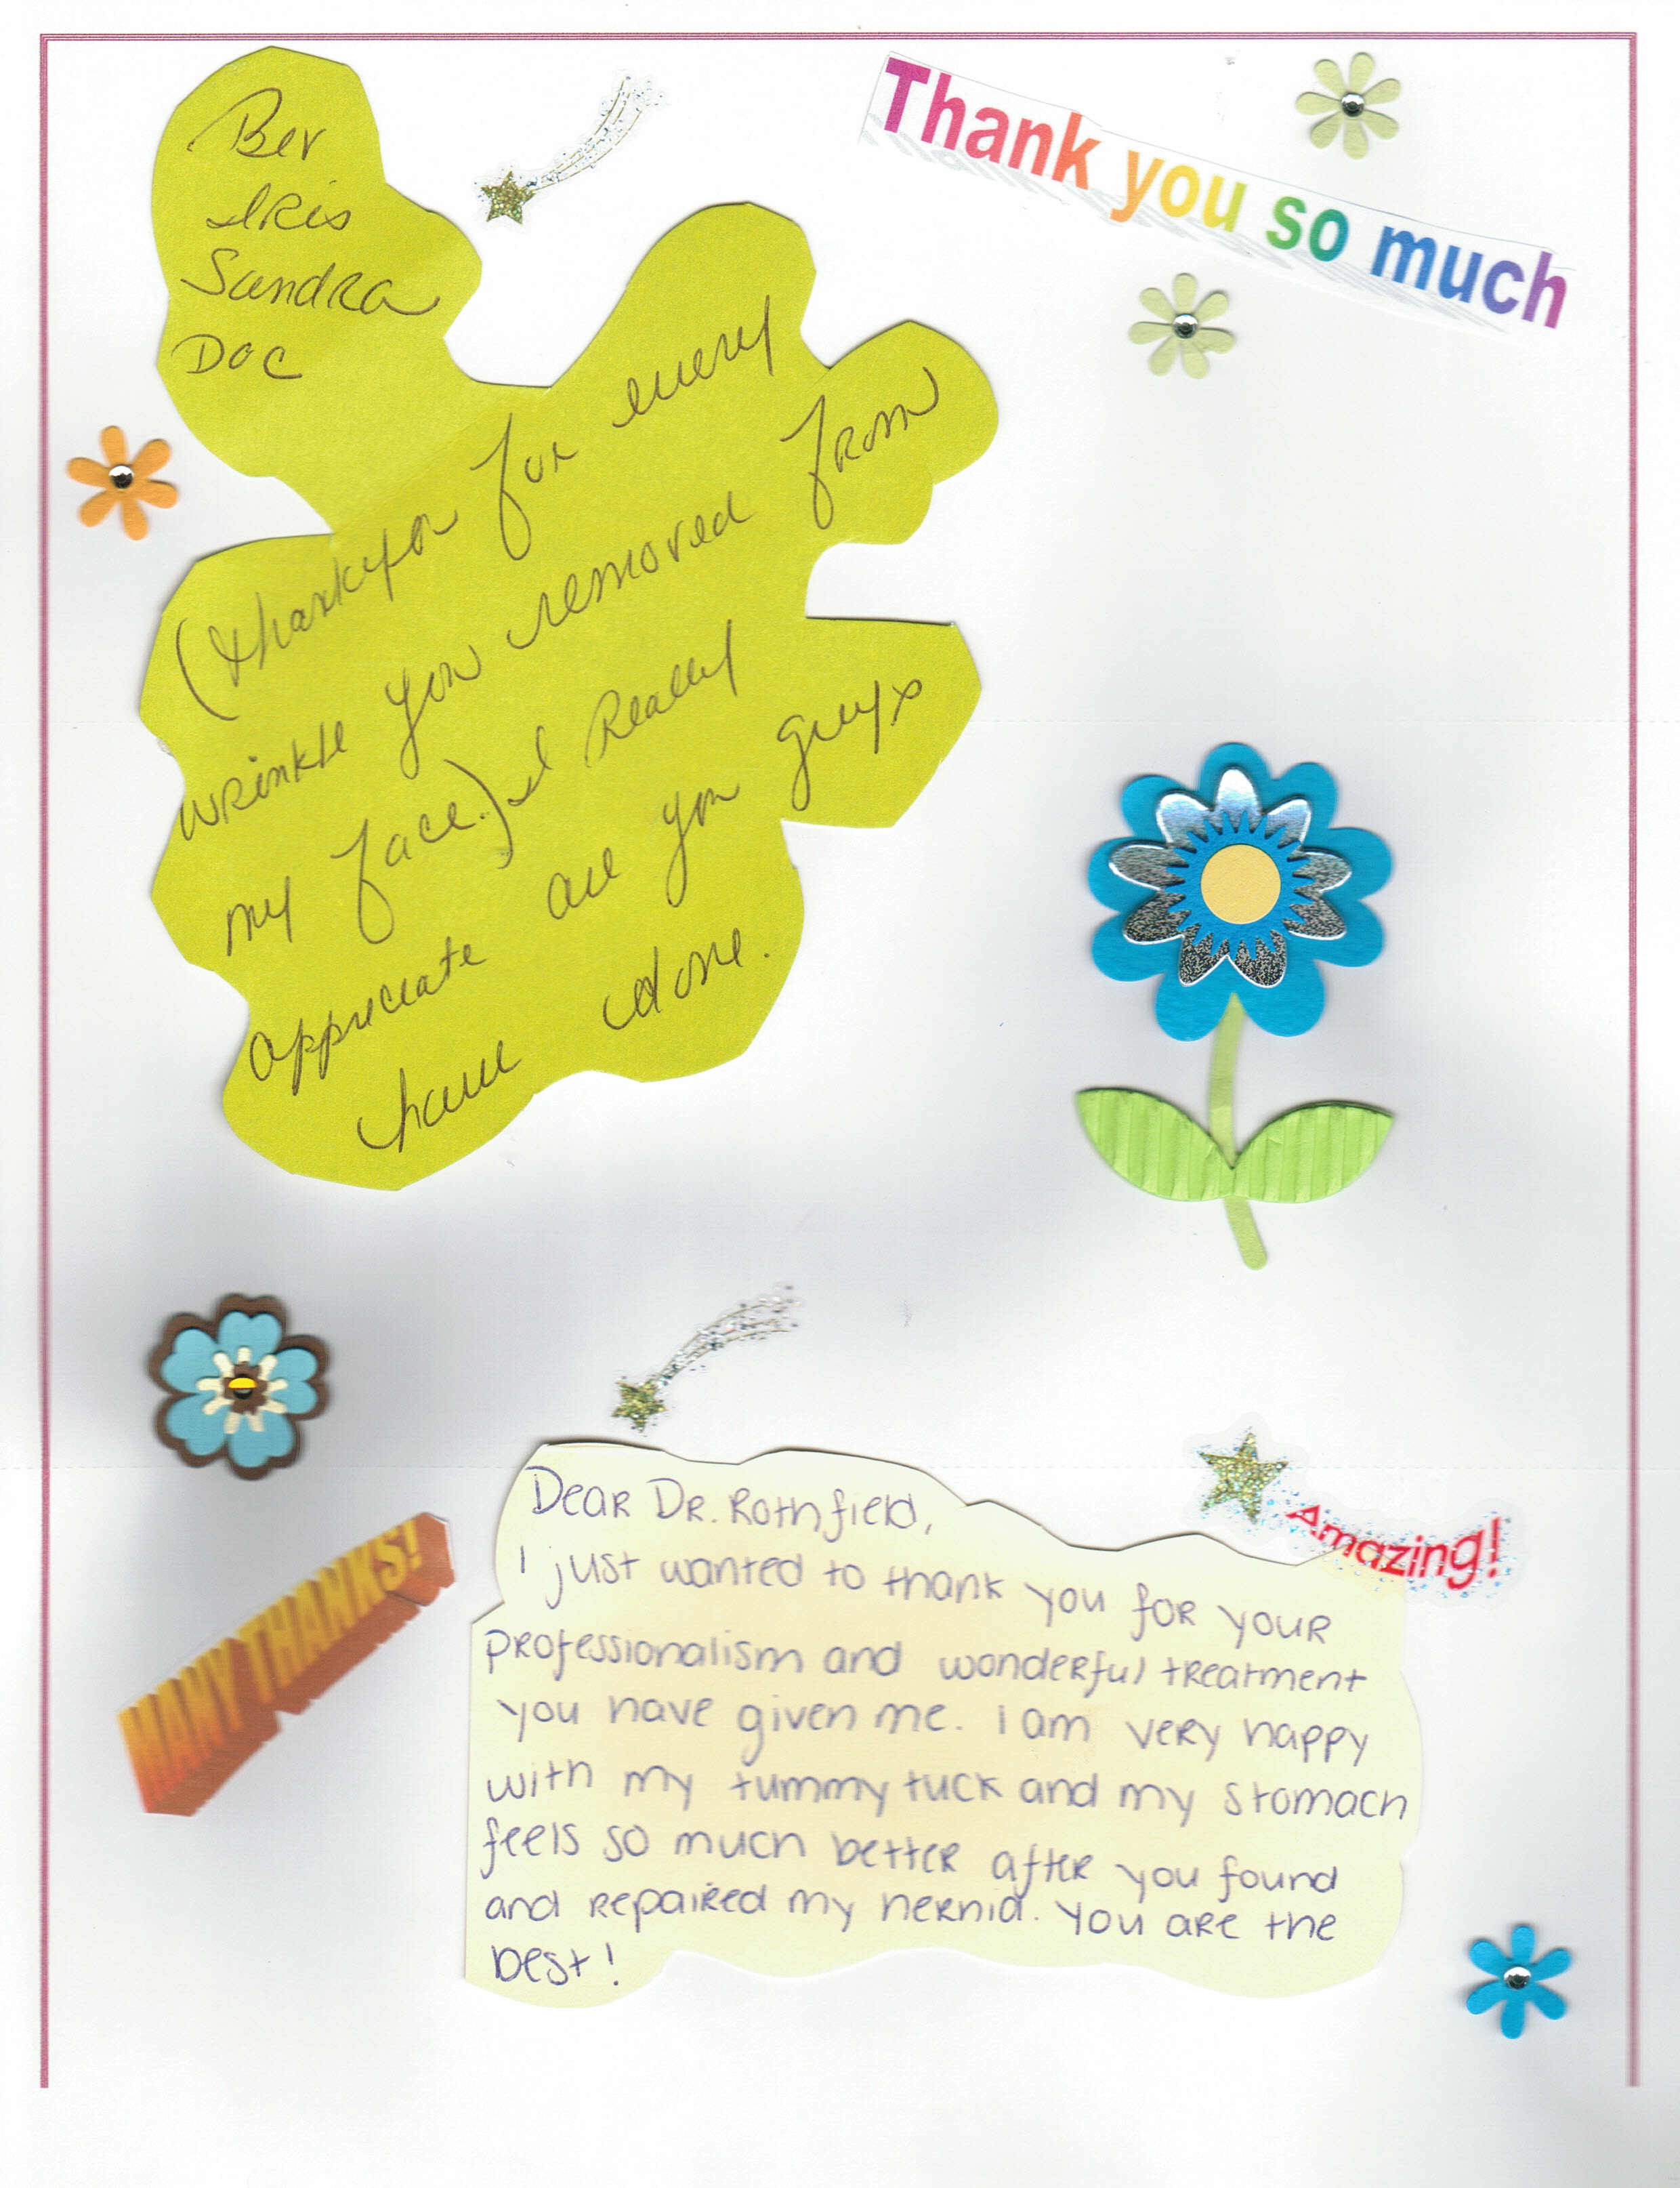 Thank you so much
Ber
Iris
Sandra
Doc
(thankyou for every
wrinkle you removed from
my face.) I Really
appreciate all you guys
have done.
MANY THANKS!
Amazing!
Dear Dr. Rothfield,
I just wanted to thank you for your
professionalism and wonderful treatment
you have given me. I am very happy
with my tummy tuck and my stomach
feels so much better after you found
and repaired my hernia. You are the
best!